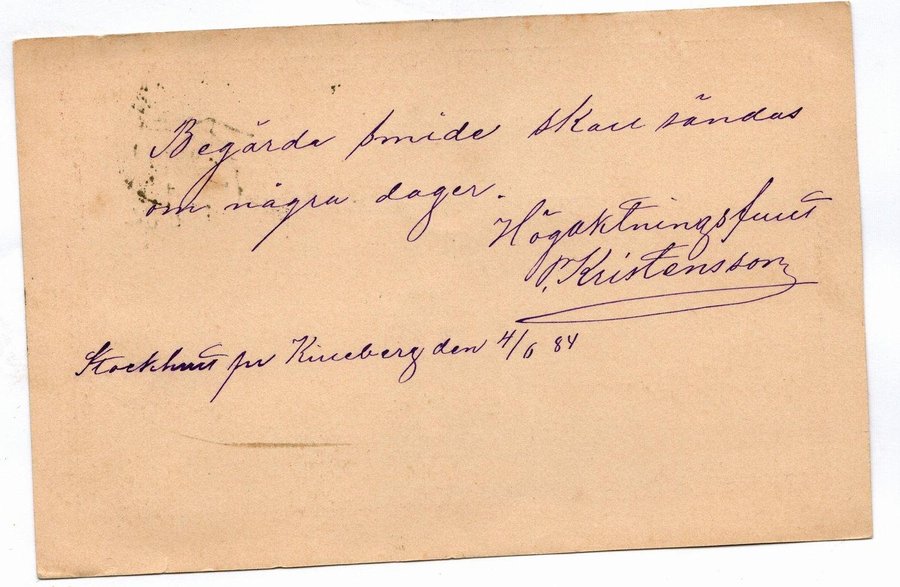 Begärda smide skall sändas
om några dager.
Högaktningsfullt
P. Kristensson
Stockhult pr Killeberg den 4/6 84